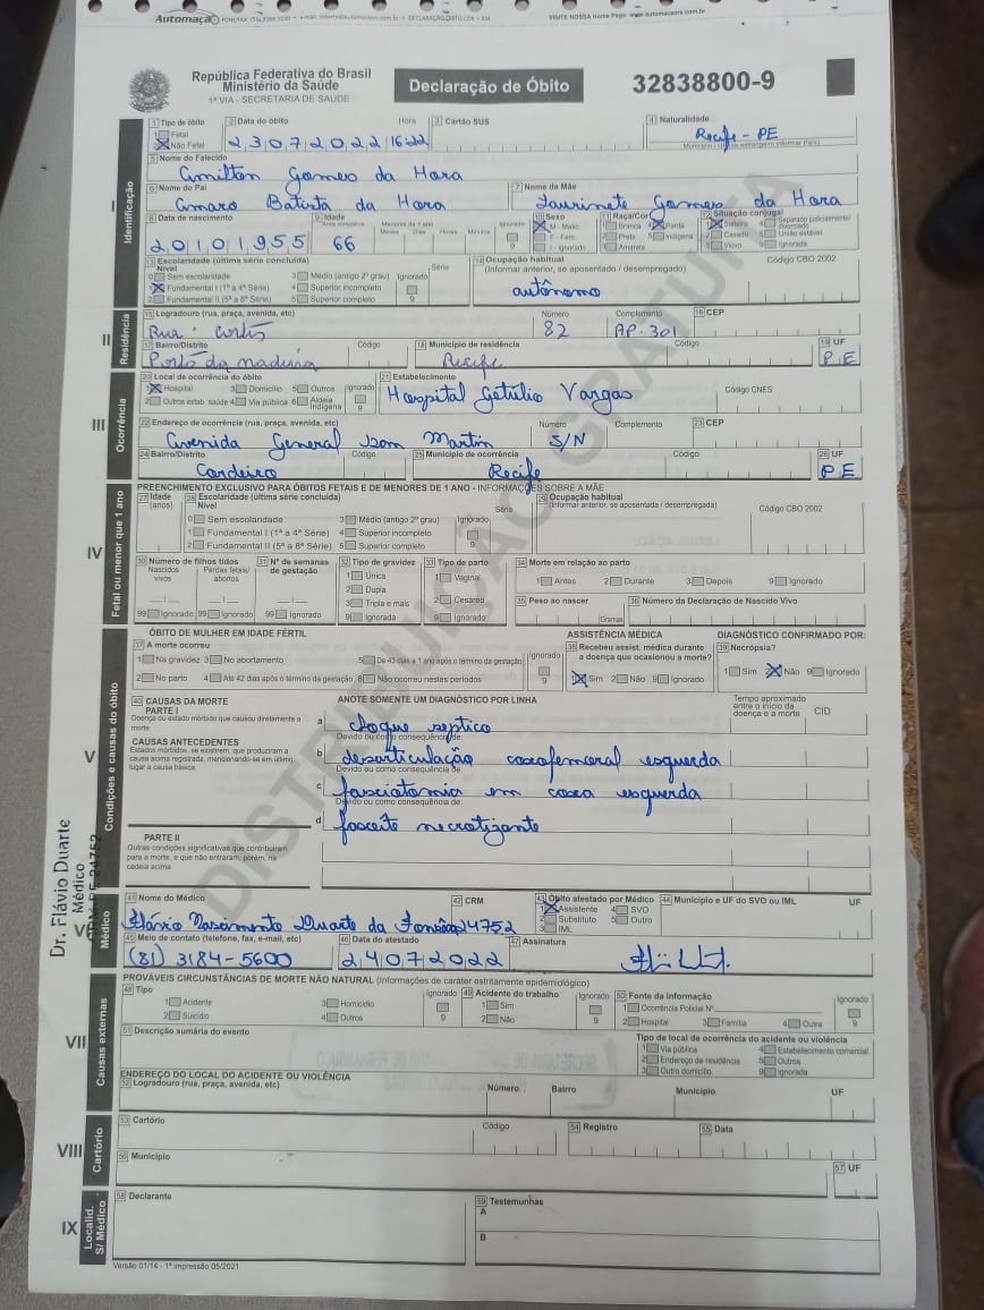 Automação
VISITE NOSSA Home Page: www.automacaors.com.br
República Federativa do Brasil
Ministério da Saúde
1ª VIA - SECRETARIA DE SAÚDE
Declaração de Óbito
32838800-9
I Identificação
1 Tipo de óbito 2 Data do óbito Hora 3 Cartão SUS 4 Naturalidade
1 Fetal
2 Não Fetal 23072022 16:22 Recife - PE
5 Nome do Falecido
Amilton Gomes da Hora
6 Nome do Pai 7 Nome da Mãe
Amaro Batista da Hora Laurinete Gomes da Hora
8 Data de nascimento 9 Idade 10 Sexo 11 Raça/Cor 12 Situação conjugal
20101955 66
13 Escolaridade (última série concluída) 14 Ocupação habitual Código CBO 2002
Nível Série (Informar anterior, se aposentado / desempregado)
0 Sem escolaridade 3 Médio (antigo 2º grau) Ignorado
1 Fundamental I (1ª a 4ª Série) 4 Superior incompleto autônomo
2 Fundamental II (5ª a 8ª Série) 5 Superior completo 9
II Residência
15 Logradouro (rua, praça, avenida, etc) Número Complemento 16 CEP
Rua: Cortês 82 AP. 301
17 Bairro/Distrito Código 18 Município de residência Código 19 UF
Porto da madeira Recife PE
III Ocorrência
20 Local de ocorrência do óbito 21 Estabelecimento Código CNES
1 Hospital 3 Domicílio 5 Outros Ignorado Hospital Getúlio Vargas
2 Outros estab. saúde 4 Via pública 6 Aldeia Indígena 9
22 Endereço de ocorrência (rua, praça, avenida, etc) Número Complemento 23 CEP
Avenida General San Martin S/N
24 Bairro/Distrito Código 25 Município de ocorrência Código 26 UF
Cordeiro Recife PE
IV Fetal ou menor que 1 ano
PREENCHIMENTO EXCLUSIVO PARA ÓBITOS FETAIS E DE MENORES DE 1 ANO - INFORMAÇÕES SOBRE A MÃE
27 Idade (anos) 28 Escolaridade (última série concluída) 29 Ocupação habitual
Nível Série (Informar anterior, se aposentada / desempregada) Código CBO 2002
0 Sem escolaridade 3 Médio (antigo 2º grau) Ignorado
1 Fundamental I (1ª a 4ª Série) 4 Superior incompleto
2 Fundamental II (5ª a 8ª Série) 5 Superior completo 9
30 Número de filhos tidos 31 Nº de semanas de gestação 32 Tipo de gravidez 33 Tipo de parto 34 Morte em relação ao parto
Nascidos vivos Perdas fetais/ abortos 1 Única 1 Vaginal 1 Antes 2 Durante 3 Depois 9 Ignorado
2 Dupla 2 Cesáreo
3 Tripla e mais 35 Peso ao nascer 36 Número da Declaração de Nascido Vivo
99 Ignorado 99 Ignorado 99 Ignorado 9 Ignorada 9 Ignorado Gramas
V Condições e causas do óbito
ÓBITO DE MULHER EM IDADE FÉRTIL ASSISTÊNCIA MÉDICA DIAGNÓSTICO CONFIRMADO POR:
37 A morte ocorreu Ignorado 38 Recebeu assist. médica durante a doença que ocasionou a morte? 39 Necrópsia?
1 Na gravidez 3 No abortamento 5 De 43 dias a 1 ano após o término da gestação
2 No parto 4 Até 42 dias após o término da gestação 8 Não ocorreu nestes períodos 9
1 Sim 2 Não 9 Ignorado 1 Sim 2 Não 9 Ignorado
40 CAUSAS DA MORTE ANOTE SOMENTE UM DIAGNÓSTICO POR LINHA Tempo aproximado entre o início da doença e a morte CID
PARTE I
Doença ou estado mórbido que causou diretamente a morte
a choque septico
Devido ou como consequência de:
CAUSAS ANTECEDENTES
Estados mórbidos, se existirem, que produziram a causa acima registrada, mencionando-se em último lugar a causa básica.
b desarticulação coxofemoral esquerda
Devido ou como consequência de:
c fasciotomia em coxa esquerda
Devido ou como consequência de:
d fasceite necrotizante
PARTE II
Outras condições significativas que contribuíram para a morte, e que não entraram, porém, na cadeia acima.
Dr. Flávio Duarte
Médico
CRM-PE 24752
Médico
41 Nome do Médico 42 CRM 43 Óbito atestado por Médico 44 Município e UF do SVO ou IML UF
Flávio Nascimento Duarte da Fonsêca 24752
1 Assistente 4 SVO
2 Substituto 5 Outro
3 IML
45 Meio de contato (telefone, fax, e-mail, etc) 46 Data do atestado 47 Assinatura
(81) 3184-5600 24072022
VII Causas externas
PROVÁVEIS CIRCUNSTÂNCIAS DE MORTE NÃO NATURAL (Informações de caráter estritamente epidemiológico)
48 Tipo Ignorado 49 Acidente do trabalho Ignorado 50 Fonte da informação Ignorado
1 Acidente 3 Homicídio 1 Sim 1 Ocorrência Policial Nº
2 Suicídio 4 Outros 9 2 Não 9 2 Hospital 3 Família 4 Outra 9
51 Descrição sumária do evento Tipo de local de ocorrência do acidente ou violência
1 Via pública 4 Estabelecimento comercial
2 Endereço de residência 5 Outros
3 Outro domicílio 9 Ignorada
ENDEREÇO DO LOCAL DO ACIDENTE OU VIOLÊNCIA
52 Logradouro (rua, praça, avenida, etc) Número Bairro Município UF
VIII Cartório
53 Cartório Código 54 Registro 55 Data
56 Município 57 UF
IX Localid. S/ Médico
58 Declarante 59 Testemunhas
A
B
Versão 01/14 - 1ª impressão 05/2021
DISTRIBUIÇÃO GRATUITA